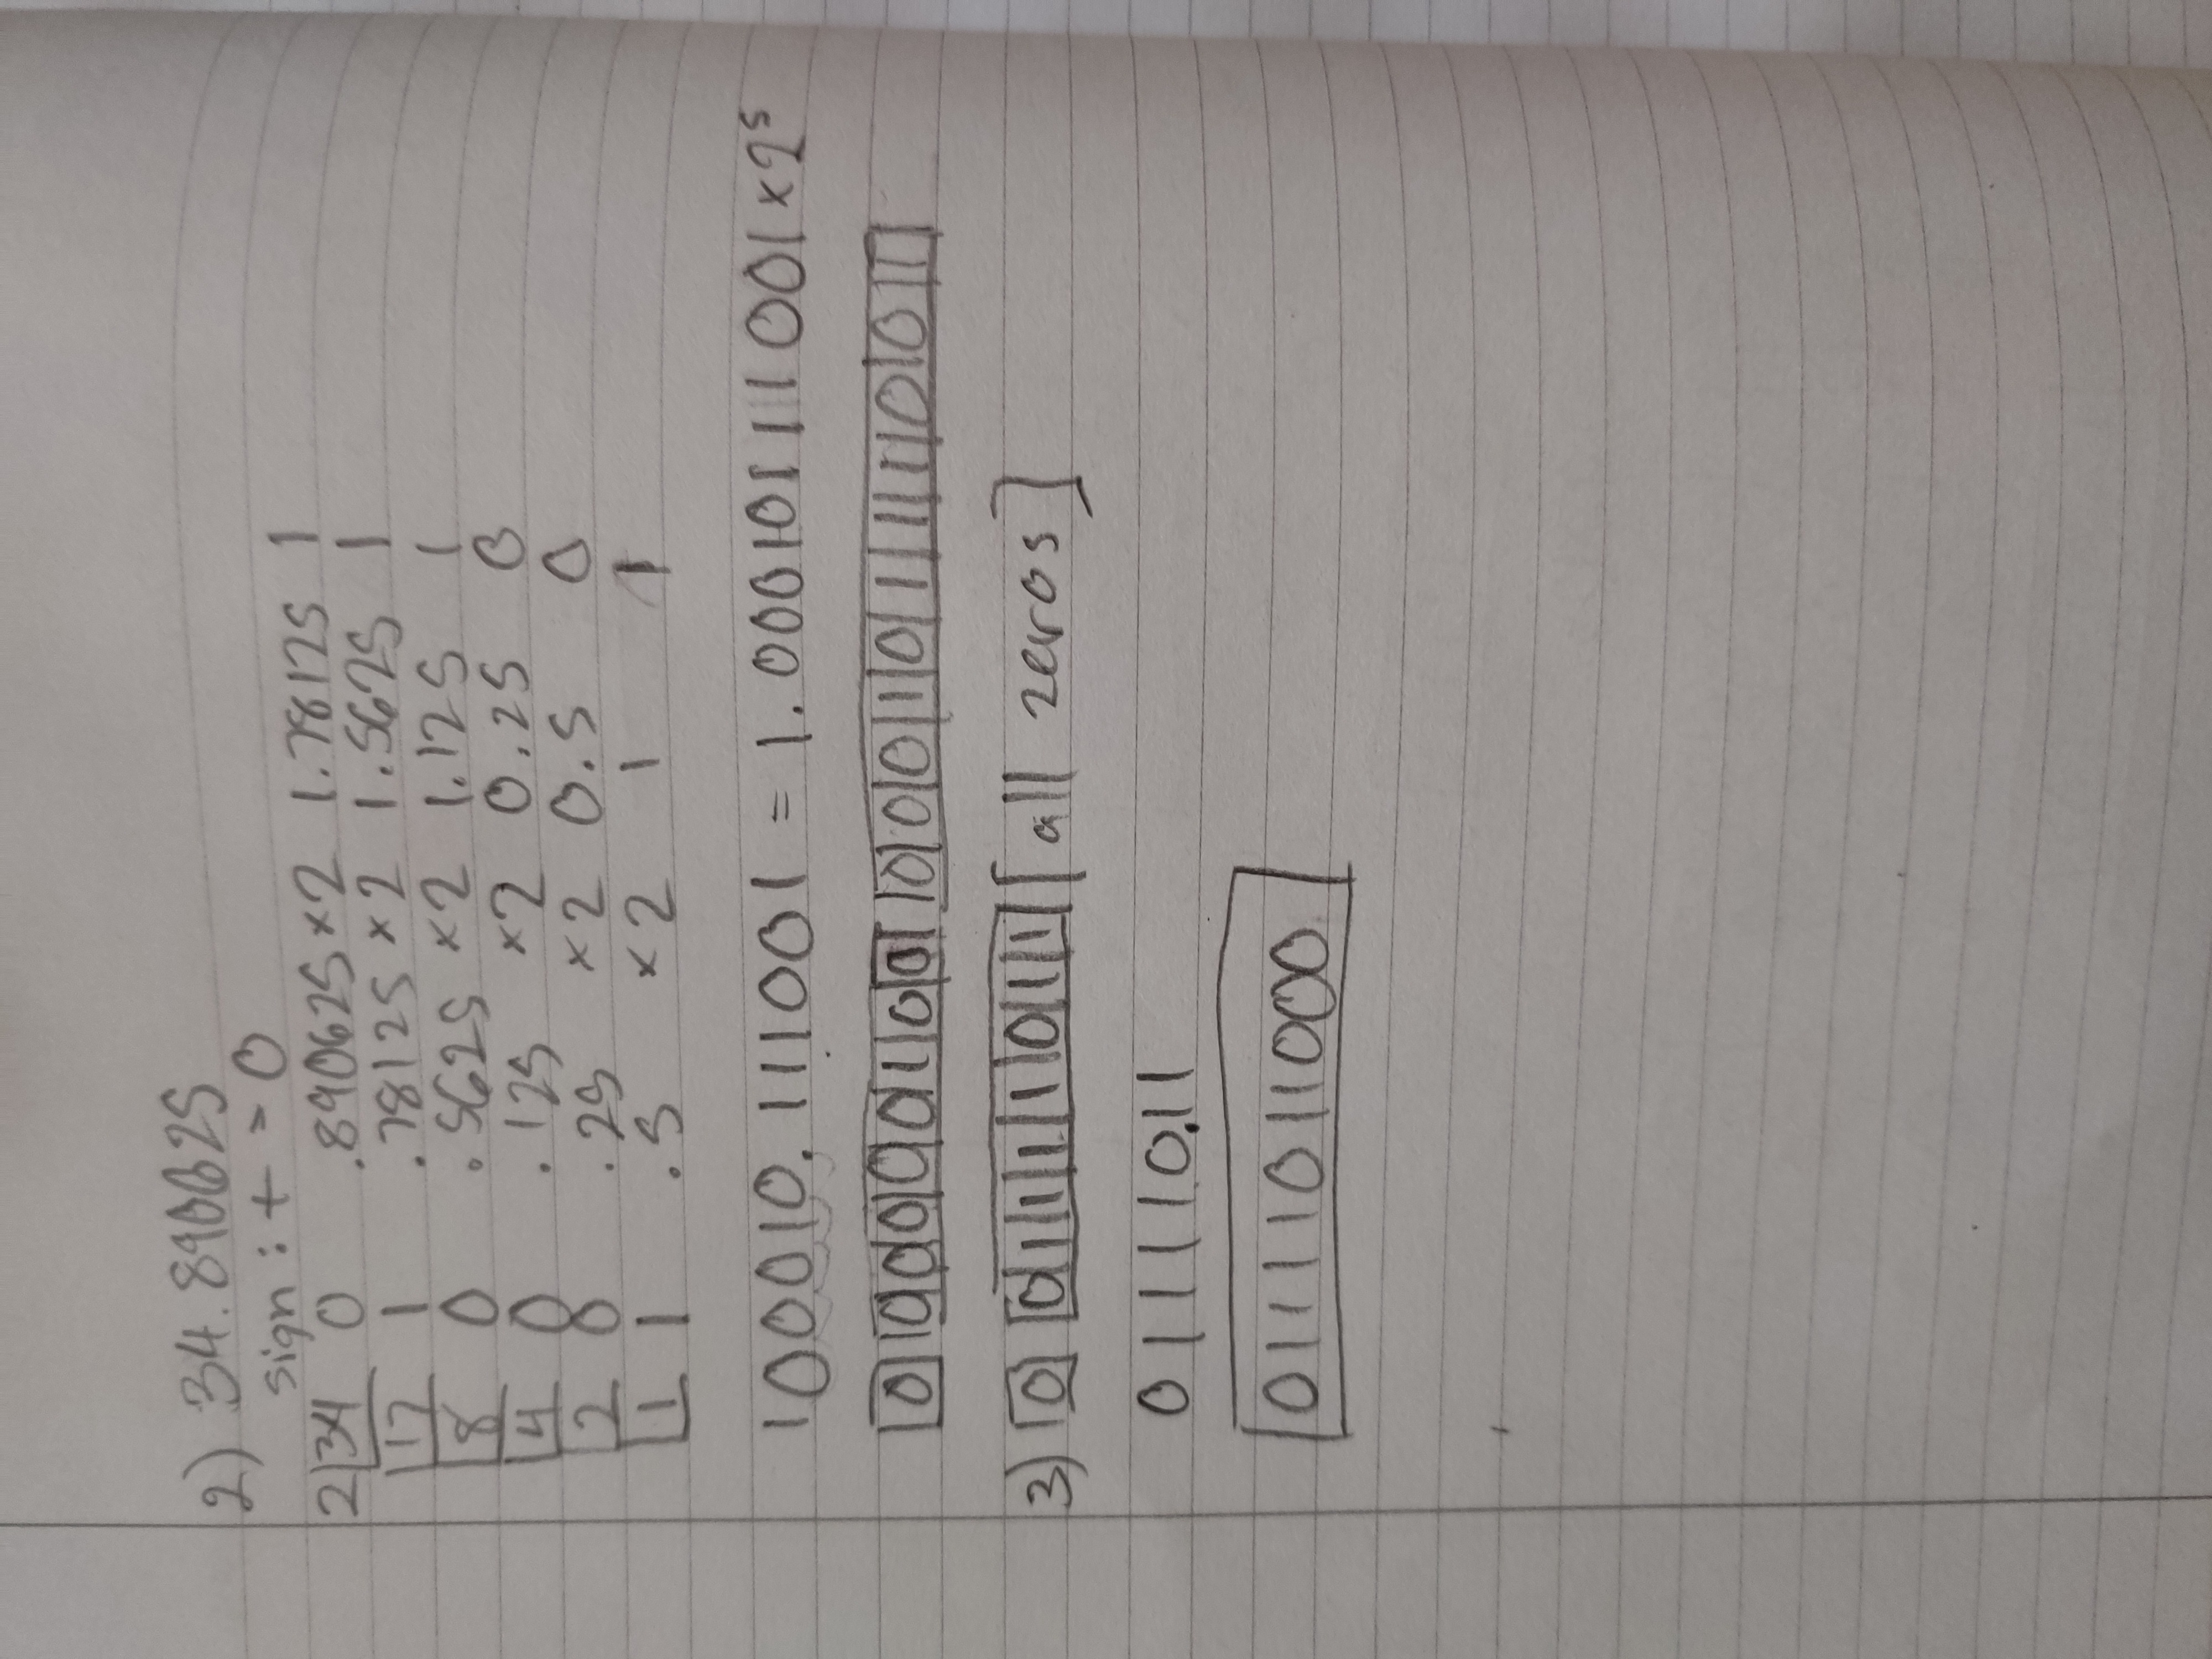 2) 34.890625
sign : + > 0
2 34 0 .890625 × 2 1.78125 1
17 1 .78125 × 2 1.5625 1
8 0 .5625 × 2 1.125 1
4 0 .125 × 2 0.25 0
2 0 .25 × 2 0.5 0
1 1 .5 × 2 1 1
100010.111001 = 1.00010111001 × 2⁵
0 0 0 0 0 0 1 0 0 0 0 0 1 0 1 1 1 0 0 1
3) 0 0 1 1 1 1 0 1 1 [all zeros]
0111110.11
01111011000